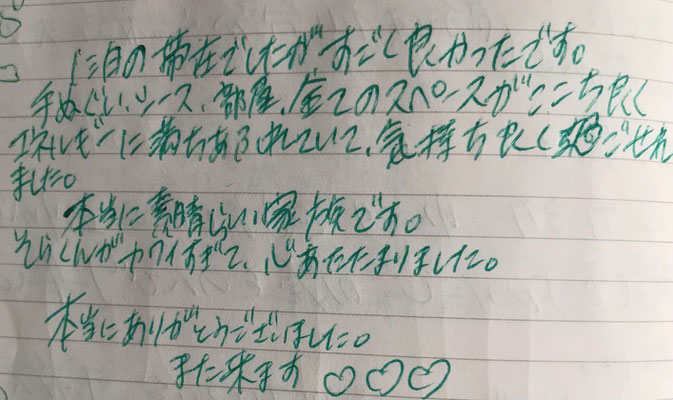 1泊の滞在でしたがすごく良かったです。
手ぬぐい、ソース、部屋、全てのスペースがここち良く
エネルギーに満ちあふれていて、気持ち良く過ごせれ
ました。
本当に素晴らしい家族です。
そらくんがカワイすぎて、心あたたまりました。
本当にありがとうございました。
また来ます ♡♡♡